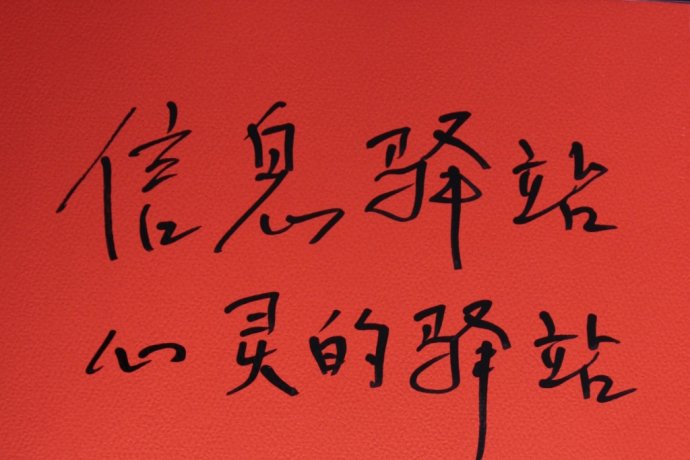 信息驿站
心灵的驿站